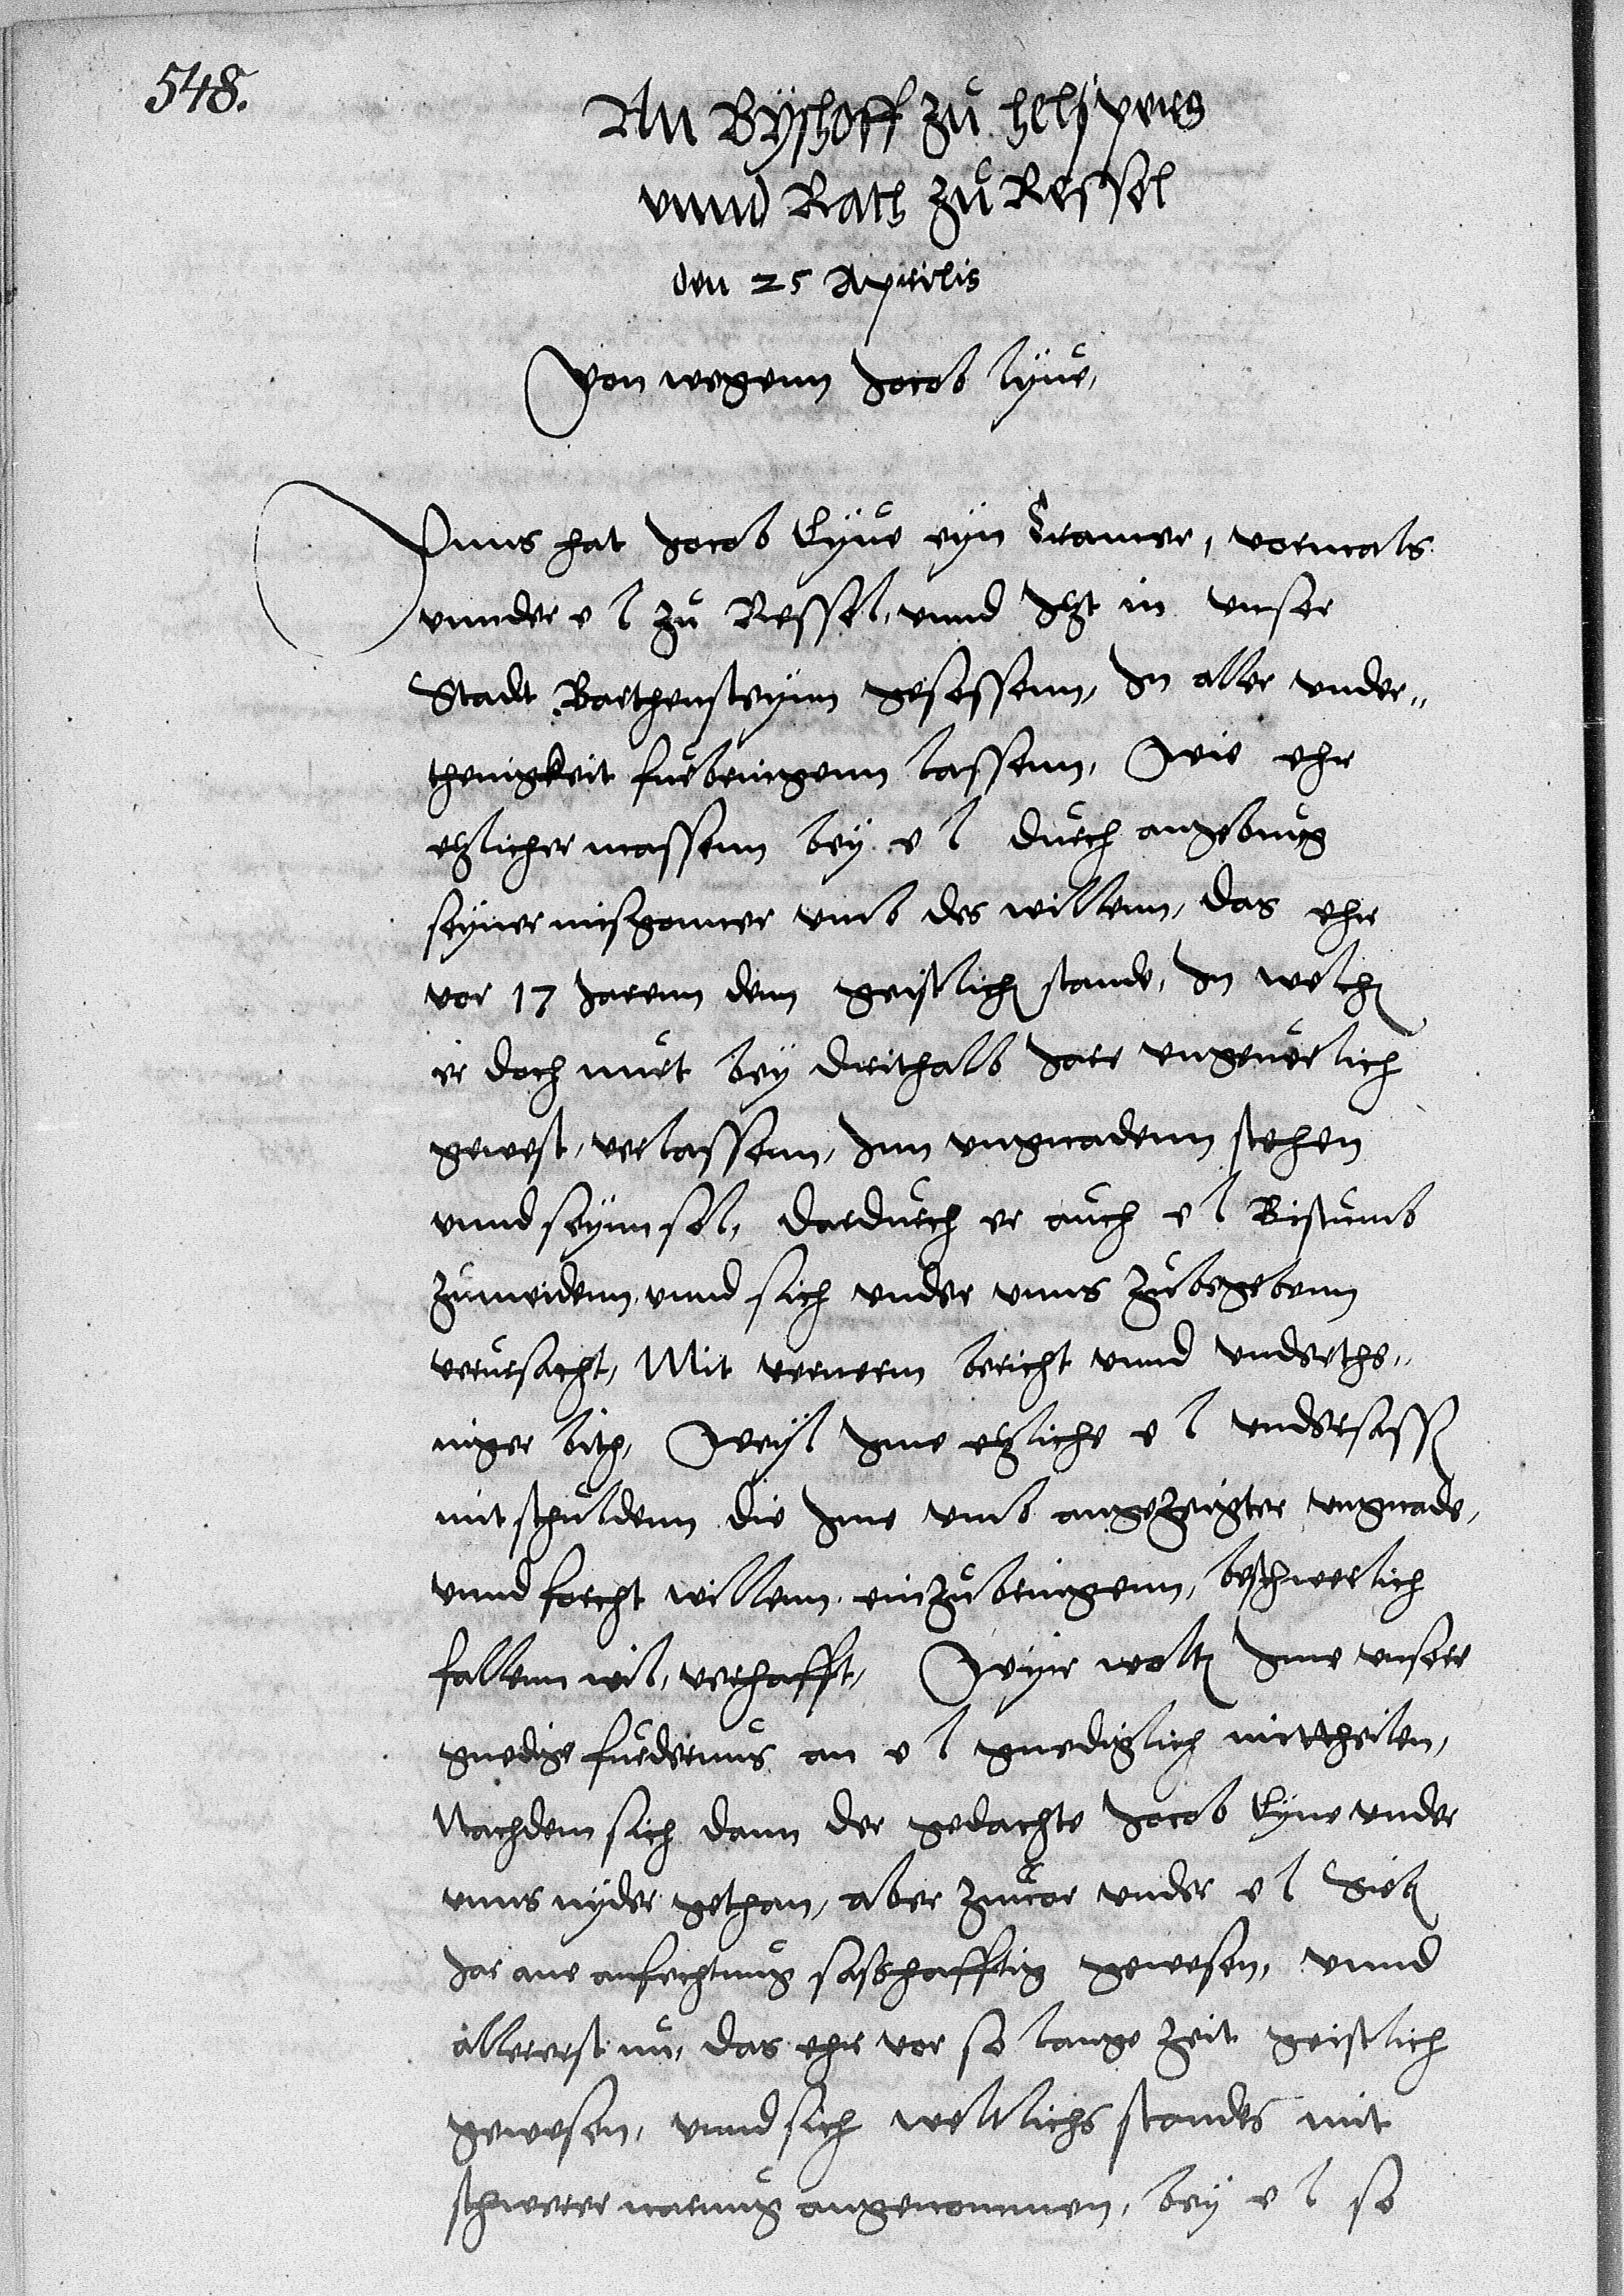 548.
An Byschoff zu helsperg
vnnd Rath zu Ressel
den 25 Aprilis
Von wegenn Jocob lyue,
Vnns hat Jocob Lyue eyn Cramer, vormals
vnnder e l zu Ressel, vnnd Jtzt in vnser
Stadt Barthensteynn gesessenn, Jn aller vnder„
thenigkeit furbringenn lassenn, Wie ehr
etzlicher massenn bey e l durch angebung
seyner misgonner vmb des willenn, das ehr
vor 17 Jarenn denn geistlich stande, Jn welch
er doch nuer bey drithalb Jare vngeuerlich
gewest, verlassenn, Jnn vngnadenn stehen
vnnd seynn sol, dardurch er auch e l Bistumb
zumeidenn, vnnd sich vnder vnns zubegebenn
verursacht, Mit vernerm bericht vnnd vnderthe„
niger bith, Weyl Jme etzliche e l vndersass
mit schuldenn die Jme vmb angezeigter vngnade,
vnnd forcht willenn, einzubringenn, beschwerlich
fallenn wil, verhafft, Weyr wolt Jme vnsere
gnedige furdernus an e l gnediglich mittheilen,
Nachdem sich dann der gedachte Jocob Lyue vnder
vnns nyder gethan, aber zuuor vnder e l Sieb
Jar ane anfechtung sasshafftig gewesen, vnnd
allererst nu, das ehr vor so lange zeit geistlich
gewesen, vnnd sich weltlichs standes mit
schwerer narung angenommen, bey e l so